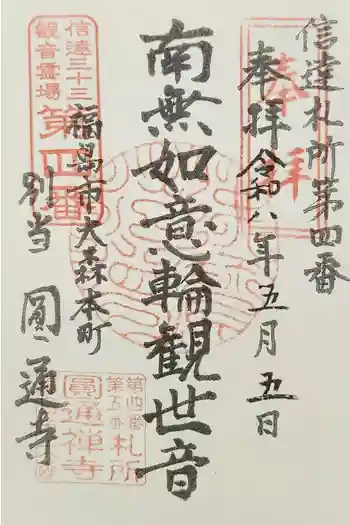 信達札所第四番
奉拝
奉拝 令和八年五月五日
南無如意輪観世音
信達三十三
観音霊場
第四番
福島市大森本町
別当 圓通寺
第四番
第五番
札所
圓通禅寺